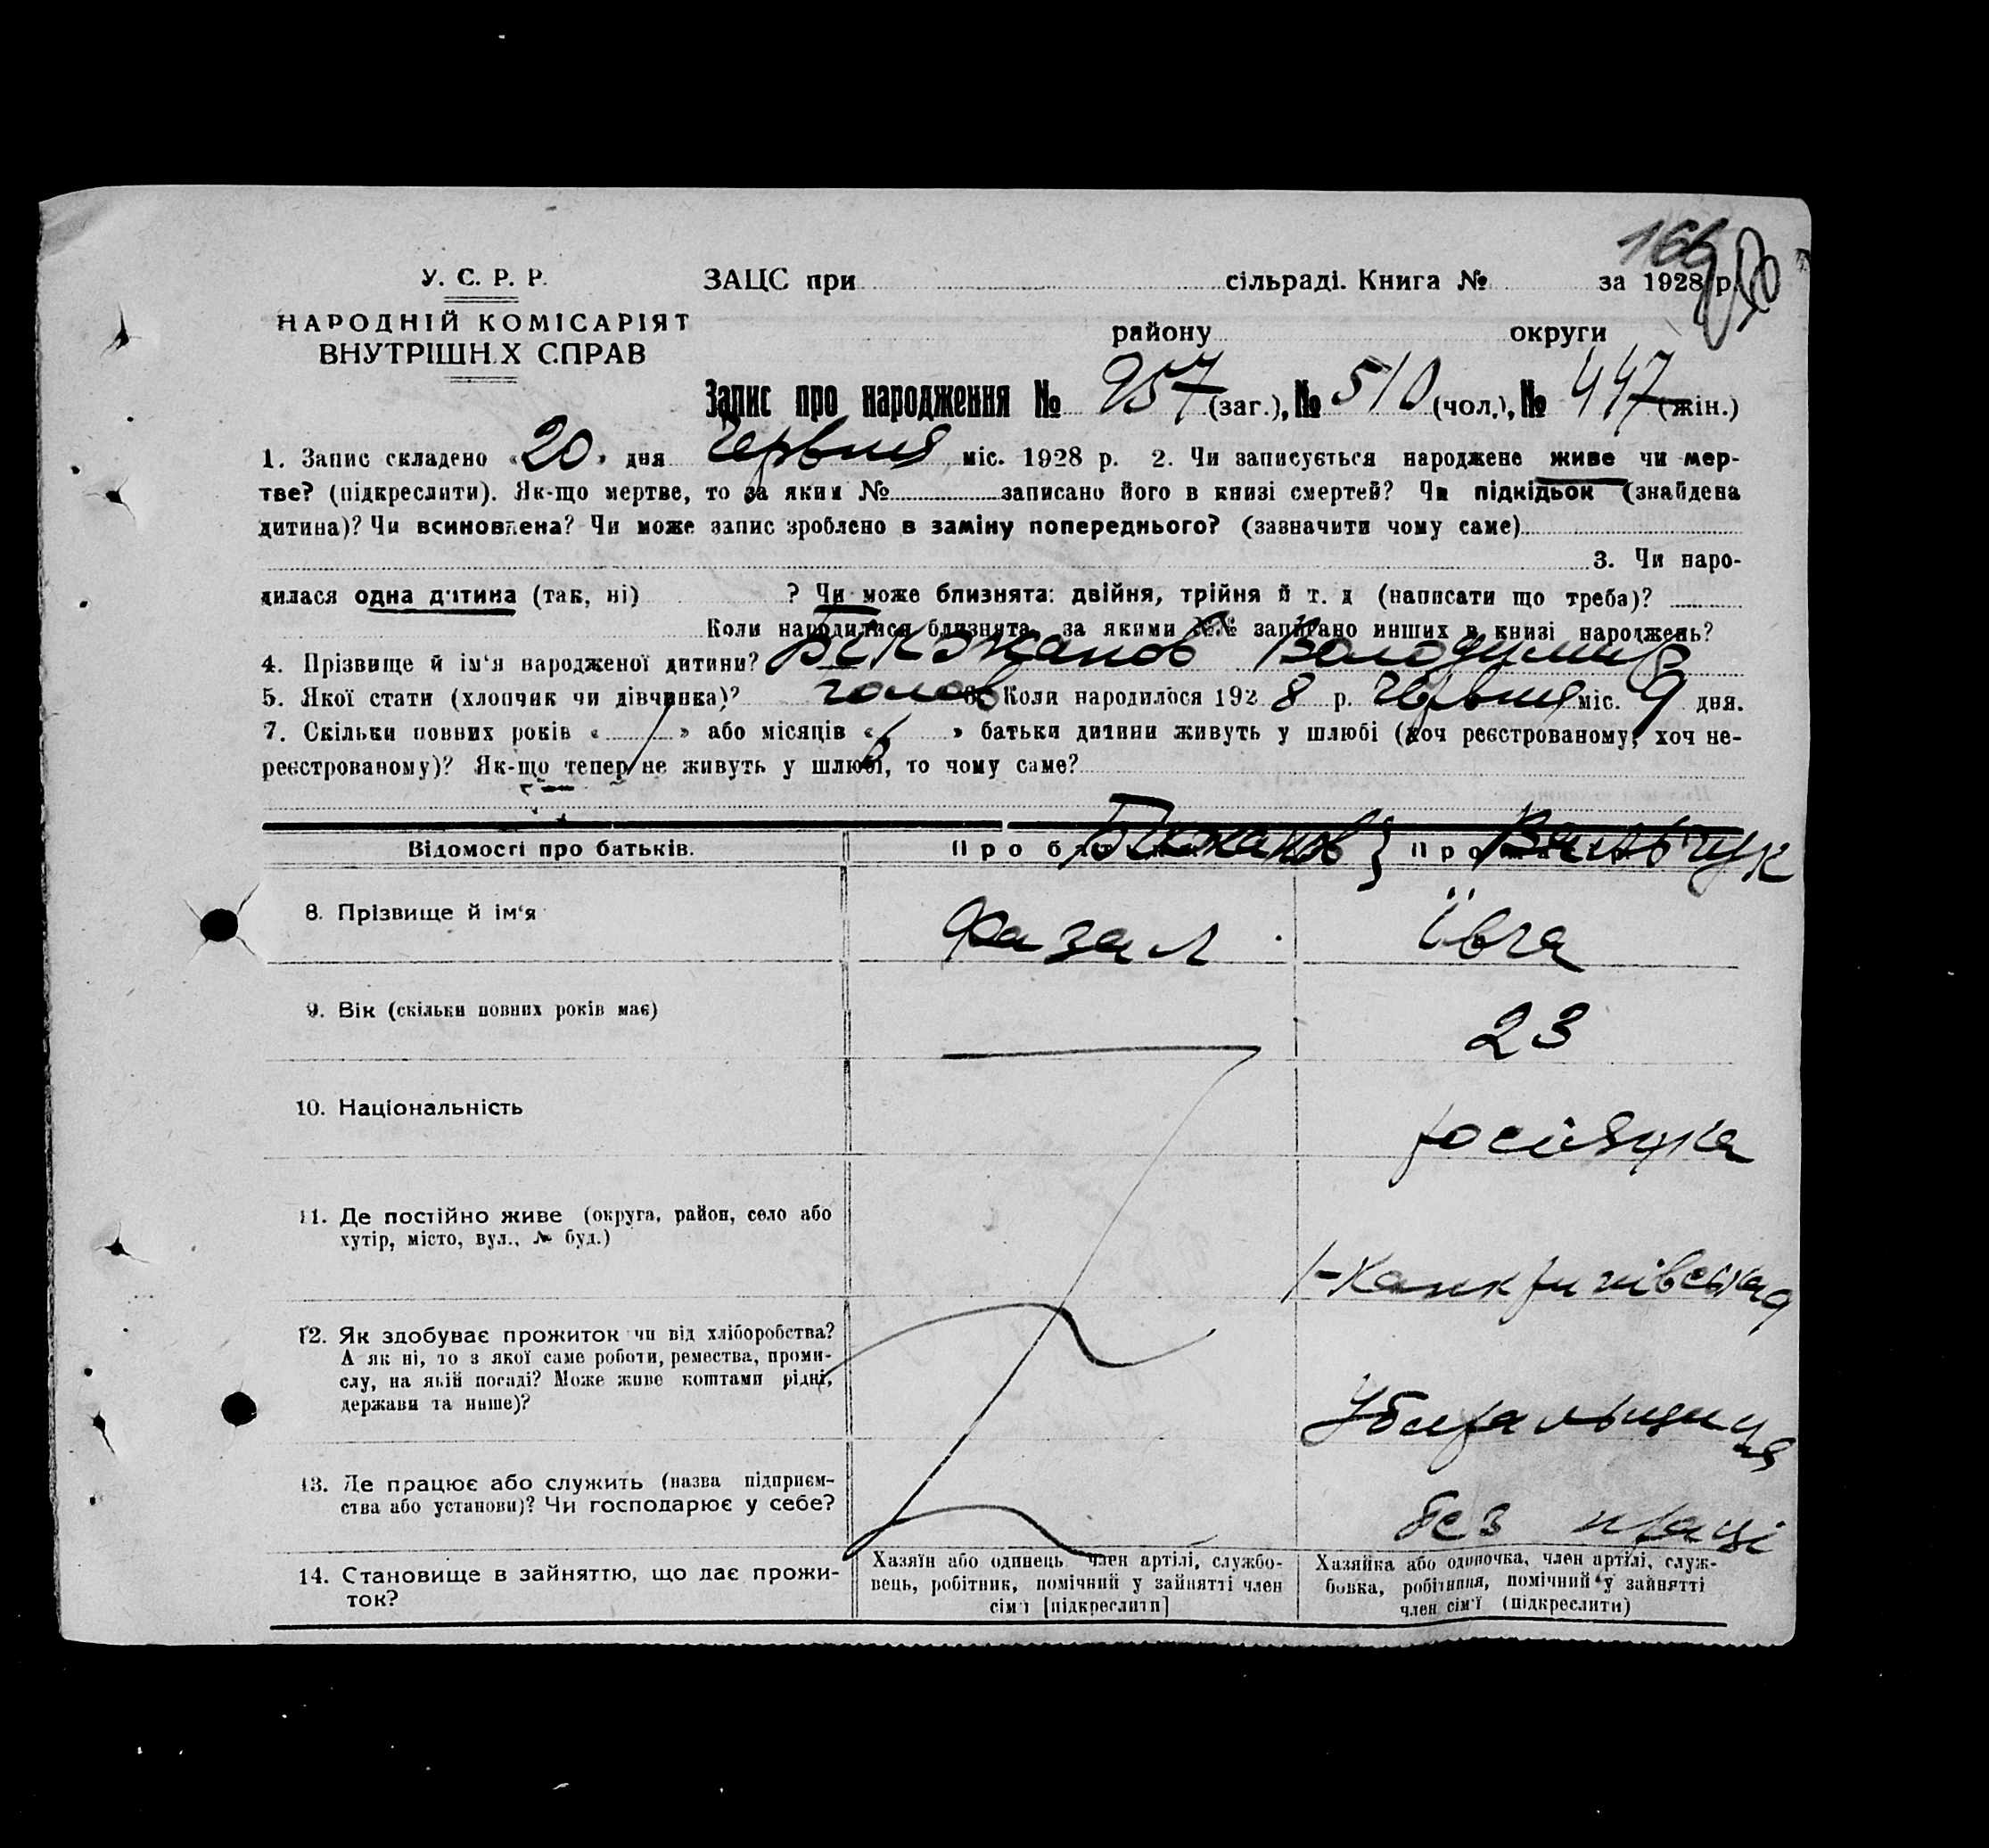 166
У. С. Р. Р.
НАРОДНІЙ КОМІСАРІЯТ
ВНУТРІШН.Х СПРАВ
ЗАЦС при сільраді. Книга № за 1928 р.
району округи
Запис про народження № 957 (заг.), № 510 (чол.), № 447 (жін.)
1. Запис складено «20» дня Червня міс. 1928 р. 2. Чи записується народжене живе чи мер-
тве? (підкреслити). Як-що мертве, то за яким № записано його в книзі смертей? Чи підкідьок (знайдена
дитина)? Чи всиновлена? Чи може запис зроблено в заміну попереднього? (зазначити чому саме)
3. Чи наро-
дилася одна дитина (так, ні) ? Чи може близнята: двійня, трійня й т. д (написати що треба)?
Коли народилися близнята за якими №№ записано инших в книзі народжень?
4. Прізвище й ім'я народженої дитини? Бікжанов Володимир
5. Якої стати (хлопчик чи дівчинка)? чолов 6. Коли народилося 1928 р. Червня міс. 9 дня.
7. Скільки повних років « 1 » або місяців « 6 » батьки дитини живуть у шлюбі (хоч реєстрованому, хоч не-
реєстрованому)? Як-що тепер не живуть у шлюбі, то чому саме?
Відомості про батьків. Про Бікжанов Про Вильчук
8. Прізвище й ім'я Фазал Ївга
9. Вік (скільки повних років має) 23
10. Національність росіянка
11. Де постійно живе (округа, район, село або
хутір, місто, вул., № буд.)
12. Як здобуває прожиток чи від хліборобства?
А як ні, то з якої саме роботи, ремества, проми-
слу, на якій посаді? Може живе коштами рідні,
держави та инше)?
Убиральщиця
13. Де працює або служить (назва підприєм-
ства або установи)? Чи господарює у себе?
без праці
14. Становище в зайняттю, що дає прожи-
ток?
Хазяїн або одинець член артілі, службо-
вець, робітник, помічний у зайнятті член
сім'ї [підкреслити]
Хазяйка або одиночка, член артілі, служ-
бовка, робітниця, помічний у зайнятті
член сім'ї (підкреслити)